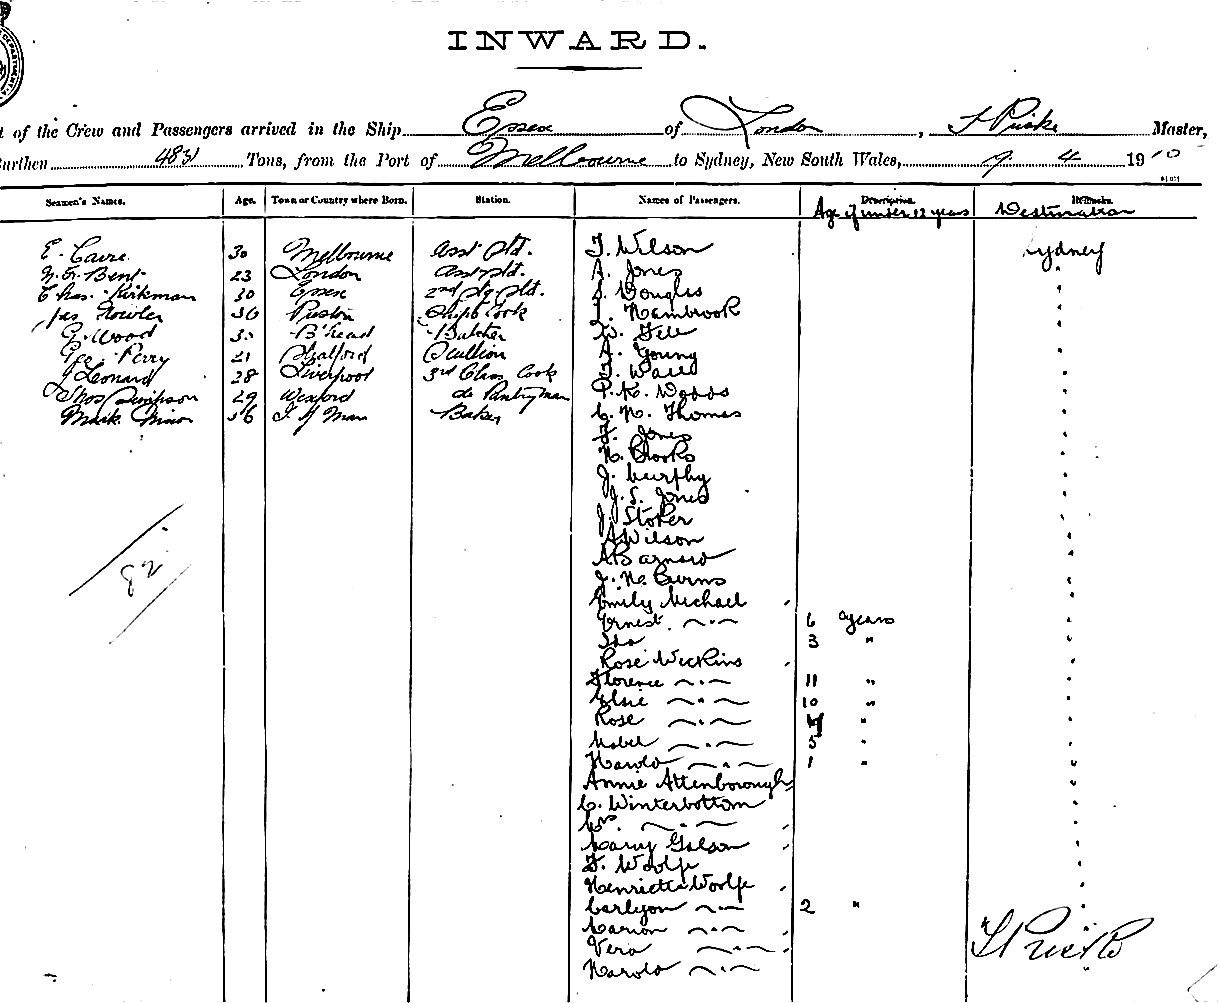 INWARD.
t of the Crew and Passengers arrived in the Ship Essex of London, F Priske Master,
Burthen 4831 Tons, from the Port of Melbourne to Sydney, New South Wales, 9. 4 1910
Seamen's Names. Age. Town or Country where Born. Station. Names of Passengers. Descriptive. Remarks.
Age if under 12 years Destination
E. Cavre 30 Melbourne Asst Std. J. Wilson Sydney
Bent 23 London Asst Std. A. Jones "
Chas. Kirkman 30 Essex 2nd Std. Douglas "
Jas Fowler 36 Preston Ships Cook Hambrook "
G. Wood 35 B'head Butcher W. "
Geo Perry 21 Stalford Scullion A. Young "
J Leonard 28 Liverpool 3rd Class Cook "
Thos Simpson 29 Wexford do Pantryman P. K. Woods "
Mark 36 I of Man Baker C. N. Thomas "
F. Jones "
H. Brooks "
J. Murphy "
J. S. Jones "
J. Stoker "
A Wilson "
A Barnard "
J. Mc Cairns "
82
Emily Michael "
Ernest —"— 6 years "
Ida 3 " "
Rose Wickins "
Florence —"— 11 " "
Elsie —"— 10 " "
Rose —"— "
Mabel —"— 5 " "
Harold —"— 1 " "
Annie Attenborough "
C. Winterbottom "
Mrs. —"— "
Harry "
F. Woolfe "
Henrietta Woolfe "
Carlyon —"— 2 " "
Marion —"—
Vera —"—
F Priske
Harold —"—